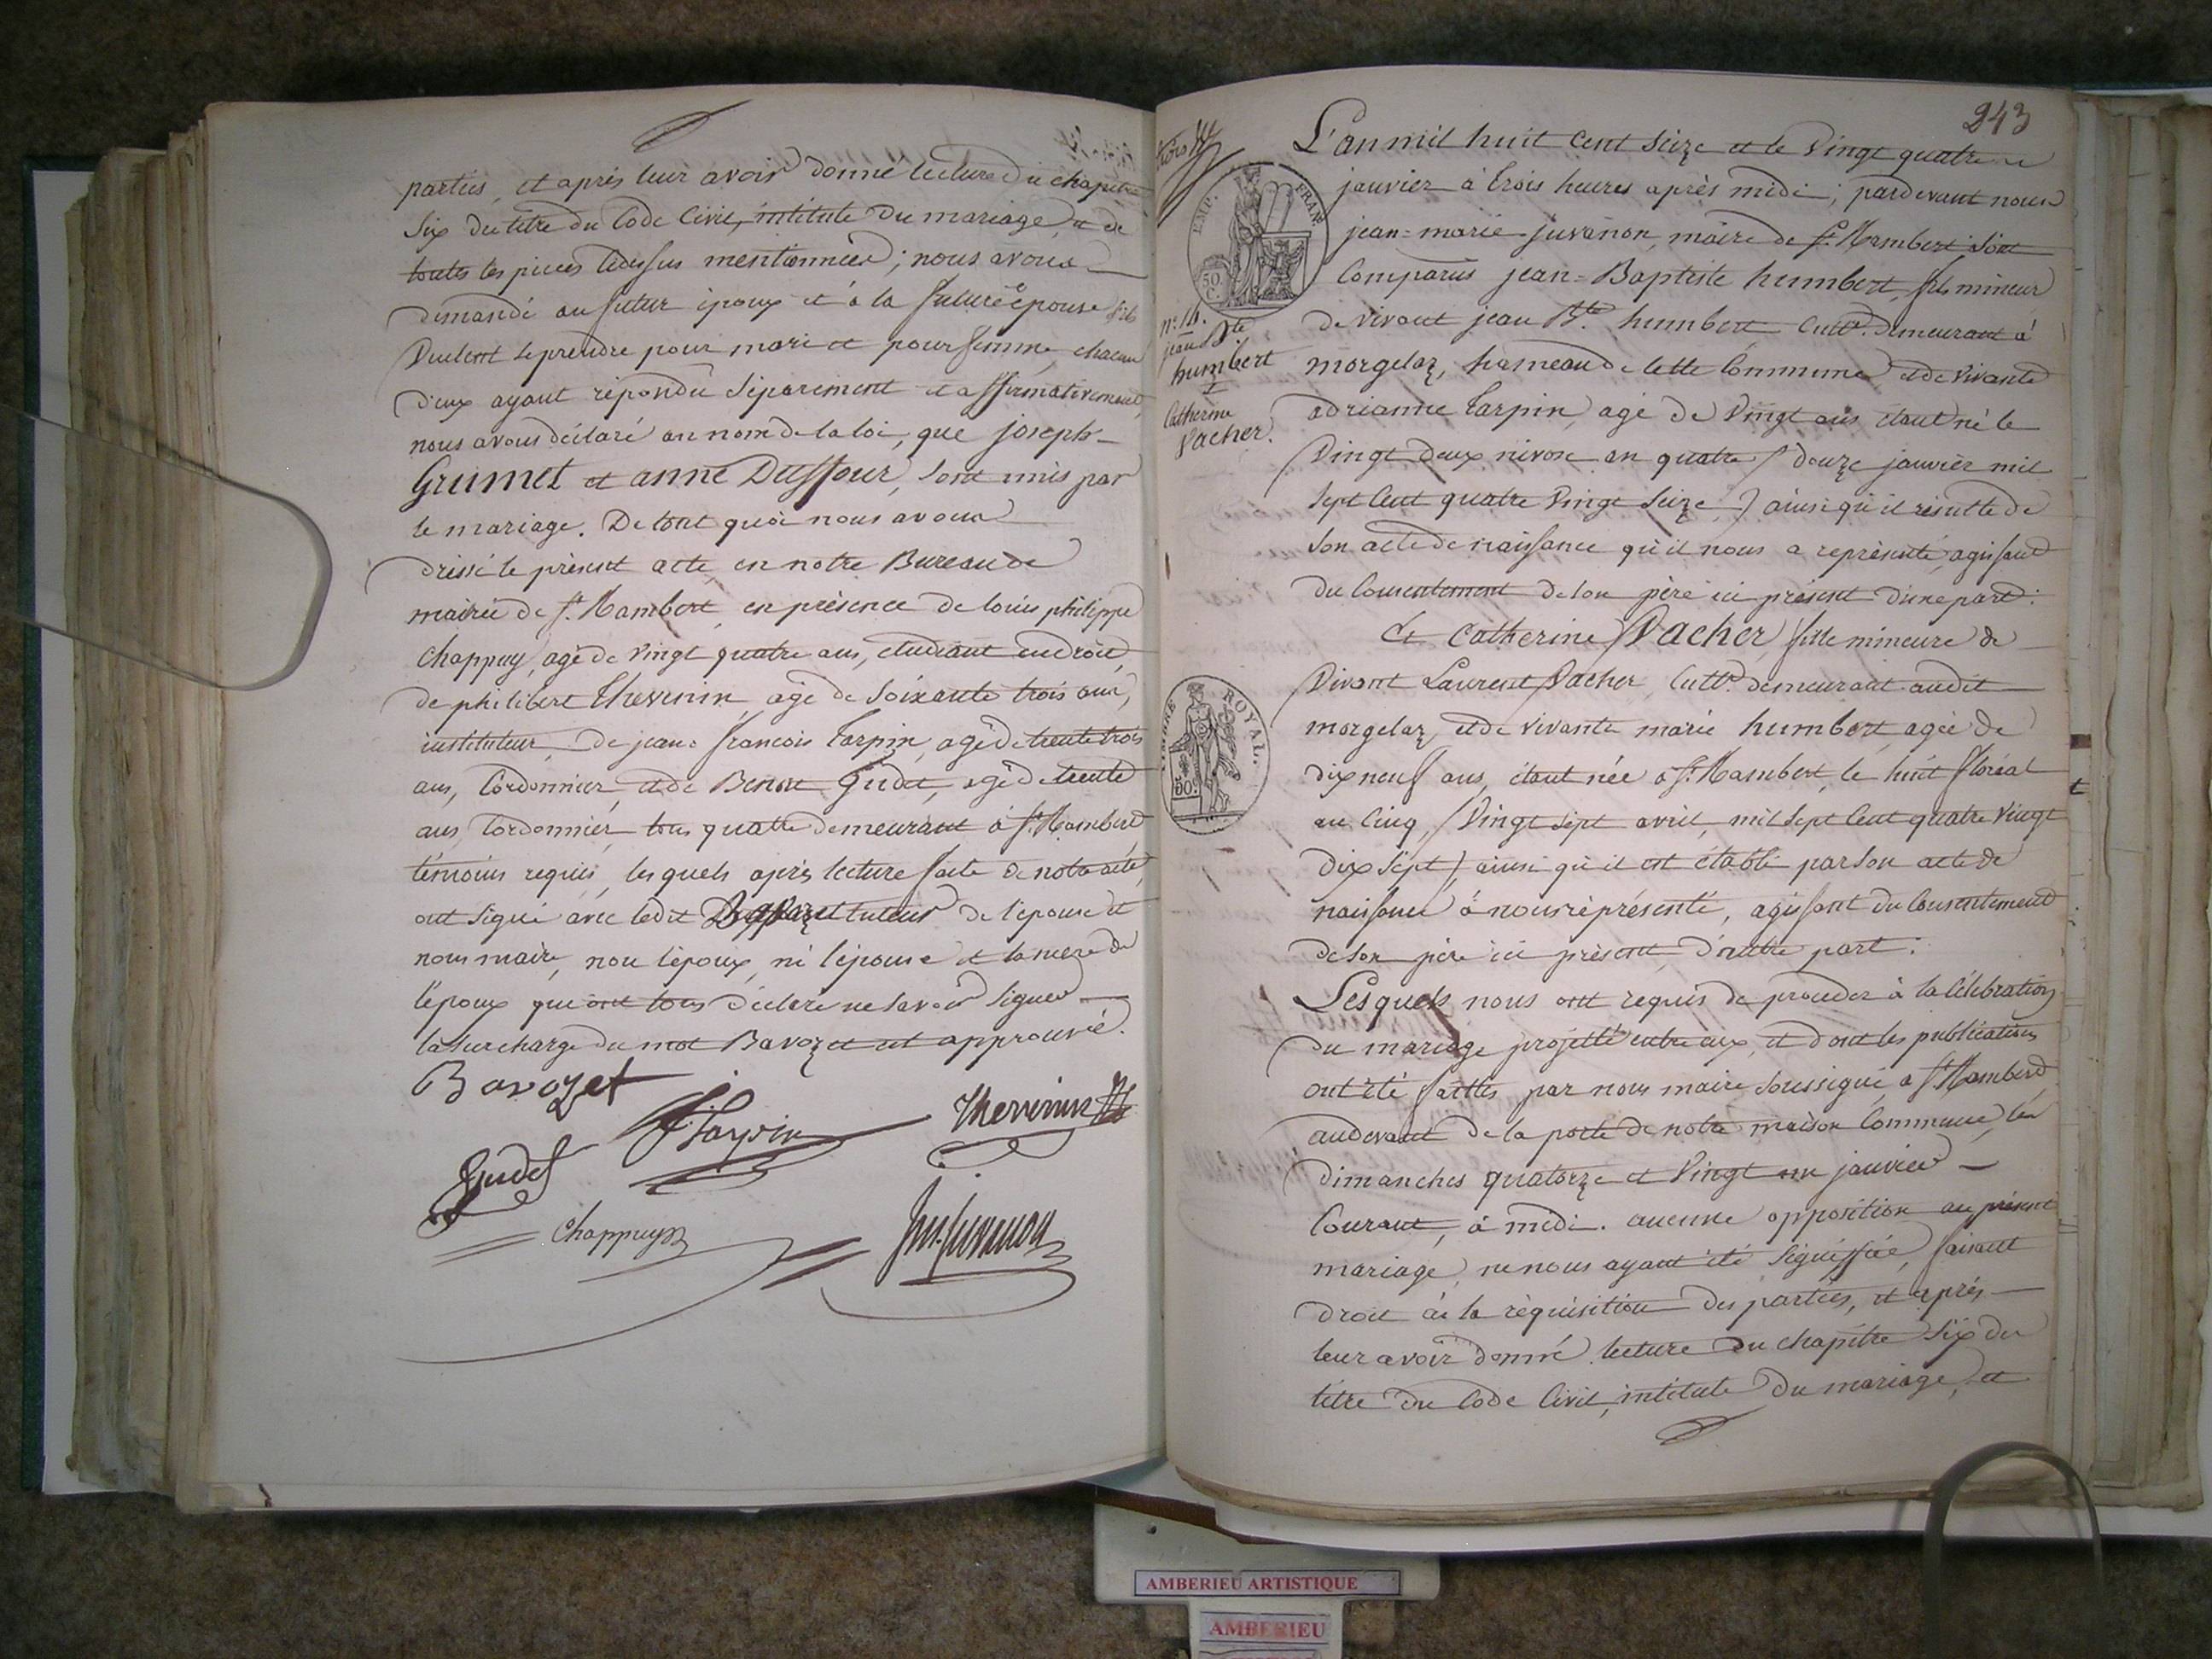 parties, et après leur avoir donné lecture du chapitre
Six du titre du Code Civil, intitulé Du mariage, et de
toutes les pieces cidessus mentionnées; nous avons
demandé au futur époux et à la future épouse s'ils
Veulent se prendre pour mari et pour femme, chacun
d'eux ayant répondu séparément et affirmativement,
nous avons déclaré au nom de la loi, que joseph
Grumet et anne Duffour, sont unis par
le mariage. De tout quoi nous avons
dressé le présent acte, en notre Bureau de
mairie de St. Rambert, en présence de louis philippe
Chappuy, agé de Vingt quatre ans, étudiant en droit,
de philibert Thevenin, agé de Soixante trois ans,
instituteur, de jean françois Tarpin, agé de trente trois
ans, Cordonnier, et de Benoit Gudet, agé de trente
ans, Cordonnier, tous quatre demeurant à St. Rambert
témoins requis, lesquels après lecture faite de notre acte,
ont signé avec ledit Bavozet tuteur de l'épouse et
nous maire, non l'époux, ni l'épouse et la mere de
l'époux qui ont tous déclaré ne savoir signer
la surcharge du mot Bavozet est approuvée.
Bavozet
Tarpin
Thevenin
Gudet
Chappuy
Jm. Juvanon
243
trois
L'an mil huit cent seize et le Vingt quatre
janvier à trois heures après midi, pardevant nous
jean-marie juvanon, maire de St. Rambert sont
Comparus jean-Baptiste humbert, fils mineur
de vivant jean Bte. humbert, Cultr. demeurant à
morgelaz, hameau de cette Commune, et de vivante
adrianne Tarpin, agé de Vingt ans étant né le
Vingt deux nivose an quatre (douze janvier mil
sept cent quatre Vingt seize,) ainsi qu'il résulte de
son acte de naissance qu'il nous a représenté, agissant
du Consentement de son père ici présent d'une part.
Et Catherine Vacher, fille mineure de
Vivant Laurent Vacher, Cultr. demeurant audit
morgelaz, et de vivante marie humbert, agée de
dix neuf ans, étant née à St. Rambert, le huit floréal
an Cinq, (Vingt sept avril, mil sept cent quatre Vingt
dix sept) ainsi qu'il est établi par son acte de
naissance à nous représenté, agissant du Consentement
de son père ici présent d'autre part.
Lesquels nous ont requis de procéder à la Célébration
du mariage projetté entre eux, et dont les publications
ont été faittes par nous maire soussigné, à St. Rambert
audevant de la porte de notre maison Commune, les
dimanches quatorze et Vingt un janvier
Courant, à midi. aucune opposition au présent
mariage, ne nous ayant été signiffiée, faisant
droit à la réquisition des parties, et après
leur avoir donné lecture du chapitre Six du
titre du Code Civil, intitulé Du mariage, et
EMP. FRAN.
50.
C.
n°. 14.
jean Bte.
humbert
Catherine
Vacher.
TIMBRE ROYAL.
50.
AMBERIEU ARTISTIQUE
AMBERIEU